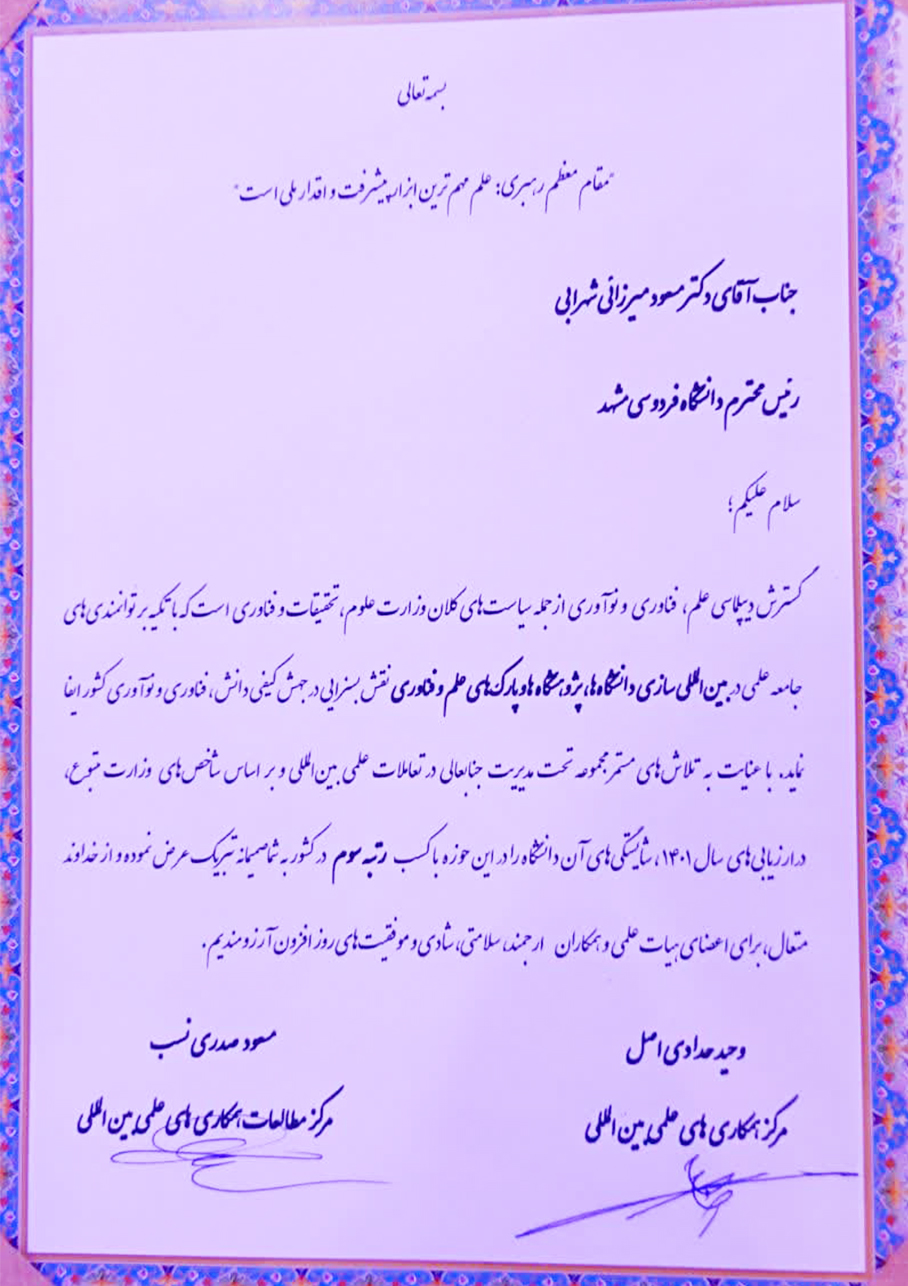 بسمه تعالی
"مقام معظم رهبری: علم مهم ترین ابزار پیشرفت و اقدار ملی است"
جناب آقای دکتر مسعود میرزائی شهرابی
رئیس محترم دانشگاه فردوسی مشهد
سلام علیکم؛
گسترش دیپلماسی علم، فناوری و نوآوری از جمله سیاست های کلان وزارت علوم، تحقیقات و فناوری است که با تکیه بر توانمندی های
جامعه علمی در بین المللی سازی دانشگاه ها، پژوهشگاه ها و پارک های علم و فناوری نقش بسزایی در جهش کیفی دانش، فناوری و نوآوری کشور ایفا
نماید. با عنایت به تلاش های مستمر مجموعه تحت مدیریت جنابعالی در تعاملات علمی بین المللی و بر اساس شاخص های وزارت متبوع،
در ارزیابی های سال ۱۴۰۱، شایستگی های آن دانشگاه را در این حوزه با کسب رتبه سوم در کشور به شما صمیمانه تبریک عرض نموده و از خداوند
متعال، برای اعضای هیات علمی و همکاران ارجمند، سلامتی، شادی و موفقیت های روز افزون آرزومندیم.
وحید حدادی اصل
مرکز همکاری های علمی بین المللی
مسعود صدری نسب
مرکز مطالعات همکاری های علمی بین المللی